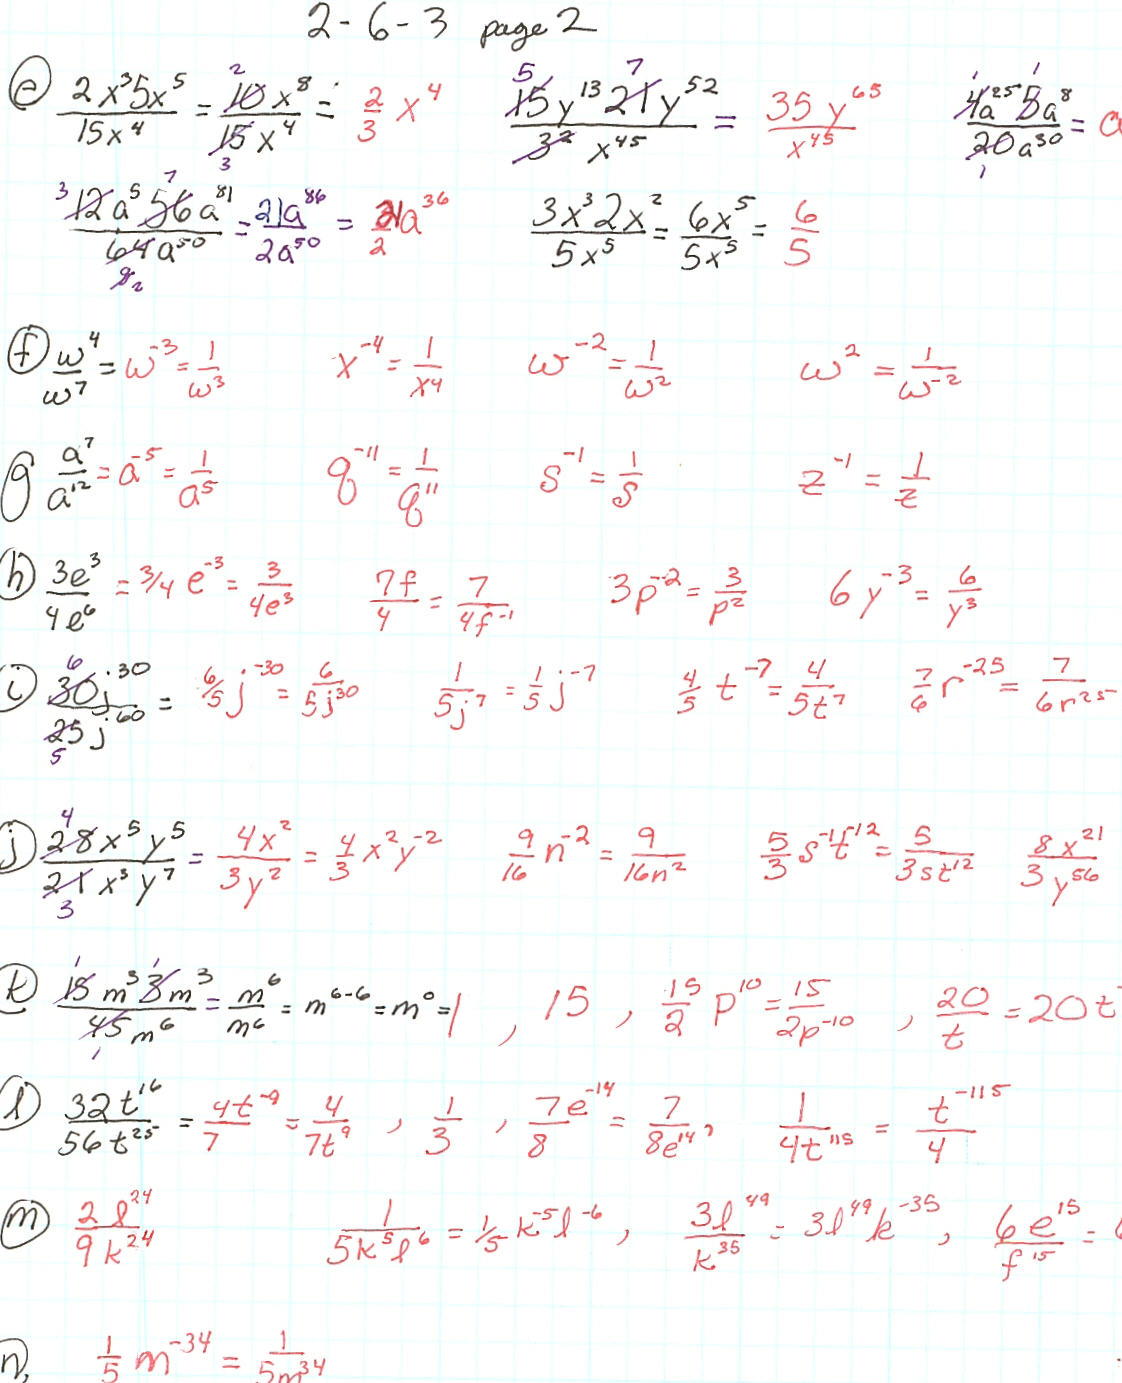 2-6-3 page 2
(e) 2x³5x⁵/15x⁴ = 10x⁸/15x⁴ = 2/3 x⁴   15y¹³21y⁵²/3² x⁴⁵ = 35y⁶⁵/x⁴⁵   4a²⁵5a⁸/20a³⁰ = a
12a⁵56a⁸¹/64a⁵⁰ = 21a⁸⁶/2a⁵⁰ = 21/2 a³⁶   3x³2x²/5x⁵ = 6x⁵/5x⁵ = 6/5
(f) w⁴/w⁷ = w⁻³ = 1/w³   x⁻⁴ = 1/x⁴   w⁻² = 1/w²   w² = 1/w⁻²
g a⁷/a¹² = a⁻⁵ = 1/a⁵   q⁻¹¹ = 1/q¹¹   s⁻¹ = 1/s   z⁻¹ = 1/z
(h) 3e³/4e⁶ = 3/4 e⁻³ = 3/4e³   7f/4 = 7/4f⁻¹   3p⁻² = 3/p²   6y⁻³ = 6/y³
(i) 30j³⁰/25j⁶⁰ = 6/5 j⁻³⁰ = 6/5j³⁰   1/5j⁷ = 1/5 j⁻⁷   4/5 t⁻⁷ = 4/5t⁷   7/6 r⁻²⁵ = 7/6r²⁵
(j) 28x⁵y⁵/21x³y⁷ = 4x²/3y² = 4/3 x²y⁻²   9/16 n⁻² = 9/16n²   5/3 s⁻¹t⁻¹² = 5/3st¹²   8x²¹/3y⁵⁶
(k) 15m³3m³/45m⁶ = m⁶/m⁶ = m⁶⁻⁶ = m⁰ = 1 , 15 , 15/2 p¹⁰ = 15/2p⁻¹⁰ , 20/t = 20t
(l) 32t¹⁶/56t²⁵ = 4t⁻⁹/7 = 4/7t⁹ , 1/3 , 7e⁻¹⁴/8 = 7/8e¹⁴ , 1/4t¹¹⁵ = t⁻¹¹⁵/4
(m) 2l²⁴/9k²⁴   1/5k⁵l⁶ = 1/5 k⁻⁵l⁻⁶ , 3l⁴⁹/k³⁵ = 3l⁴⁹k⁻³⁵ , 6e¹⁵/f¹⁵ =
n, 1/5 m⁻³⁴ = 1/5m³⁴